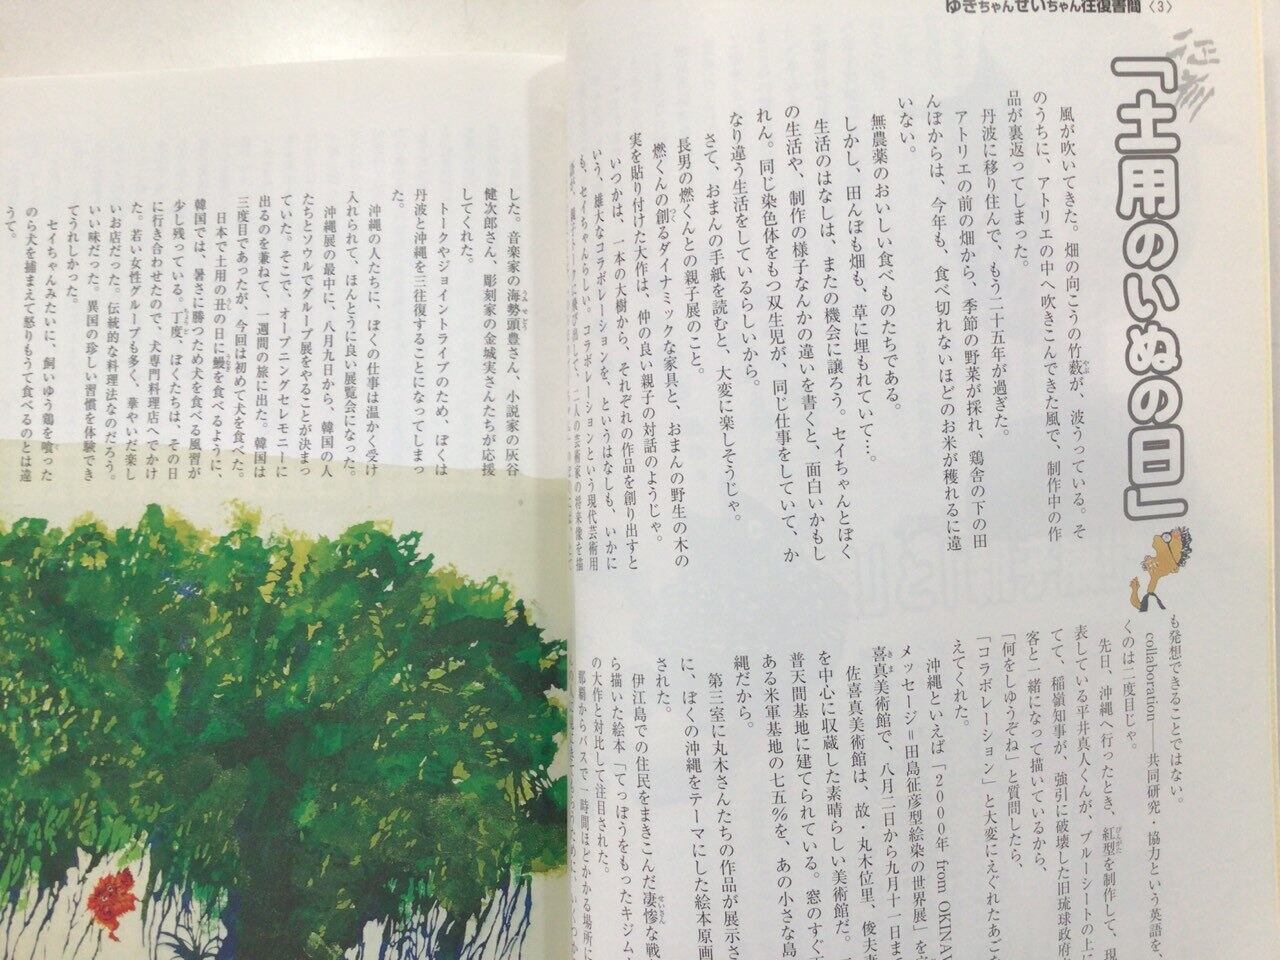 ゆきちゃんせいちゃん往復書簡〈3〉
征彦
「土用のいぬの日」
風が吹いてきた。畑の向こうの竹藪が、波うっている。そ
のうちに、アトリエの中へ吹きこんできた風で、制作中の作
品が裏返ってしまった。
丹波に移り住んで、もう二十五年が過ぎた。
アトリエの前の畑から、季節の野菜が採れ、鶏舎の下の田
んぼからは、今年も、食べ切れないほどのお米が穫れるに違
いない。
無農薬のおいしい食べものたちである。
しかし、田んぼも畑も、草に埋もれていて…。
生活のはなしは、またの機会に譲ろう。セイちゃんとぼく
の生活や、制作の様子なんかの違いを書くと、面白いかもし
れん。同じ染色体をもつ双生児が、同じ仕事をしていて、か
なり違う生活をしているらしいから。
さて、おまんの手紙を読むと、大変に楽しそうじゃ。
長男の燃くんとの親子展のこと。
燃くんの創るダイナミックな家具と、おまんの野生の木の
実を貼り付けた大作は、仲の良い親子の対話のようじゃ。
いつかは、一本の大樹から、それぞれの作品を創り出すと
いう、雄大なコラボレーションを、というはなしも、いかに
も、セイちゃんらしい。コラボレーションという現代芸術用
も発想できることではない。
collaboration――共同研究・協力という英語を、
くのは二度目じゃ。
先日、沖縄へ行ったとき、紅型を制作して、現
表している平井真人くんが、ブルーシートの上に
てて、稲嶺知事が、強引に破壊した旧琉球政府
客と一緒になって描いているから、
「何をしゆうぞね」と質問したら、
「コラボレーション」と大変にえぐれたあご
えてくれた。
沖縄といえば「2000年 from OKINAW
メッセージ＝田島征彦型絵染の世界展」を
喜真美術館で、八月二日から九月十一日ま
佐喜真美術館は、故・丸木位里、俊夫
を中心に収蔵した素晴らしい美術館だ。
普天間基地に建てられている。窓のすぐ
ある米軍基地の七五％を、あの小さな島
縄だから。
第三室に丸木さんたちの作品が展示さ
に、ぼくの沖縄をテーマにした絵本原画
された。
伊江島での住民をまきこんだ凄惨な戦
ら描いた絵本「てっぽうをもったキジム
の大作と対比して注目された。
那覇からバスで一時間ほどかかる場所に
した。音楽家の海勢頭豊さん、小説家の灰谷
健次郎さん、彫刻家の金城実さんたちが応援
してくれた。
トークやジョイントライブのため、ぼくは
丹波と沖縄を三往復することになってしまっ
た。
沖縄の人たちに、ぼくの仕事は温かく受け
入れられて、ほんとうに良い展覧会になった。
沖縄展の最中に、八月九日から、韓国の人
たちとソウルでグループ展をやることが決まっ
ていた。そこで、オープニングセレモニーに
出るのを兼ねて、一週間の旅に出た。韓国は
三度目であったが、今回は初めて犬を食べた。
日本で土用の丑の日に鰻を食べるように、
韓国では、暑さに勝つため犬を食べる風習が
少し残っている。丁度、ぼくたちは、その日
に行き合わせたので、犬専門料理店へでかけ
た。若い女性グループも多く、華やいだ楽し
いお店だった。伝統的な料理法なのだろう。
いい味だった。異国の珍しい習慣を体験でき
てうれしかった。
セイちゃんみたいに、飼いゆう鶏を喰った
のら犬を捕まえて怒りもうて食べるのとは違
うて。